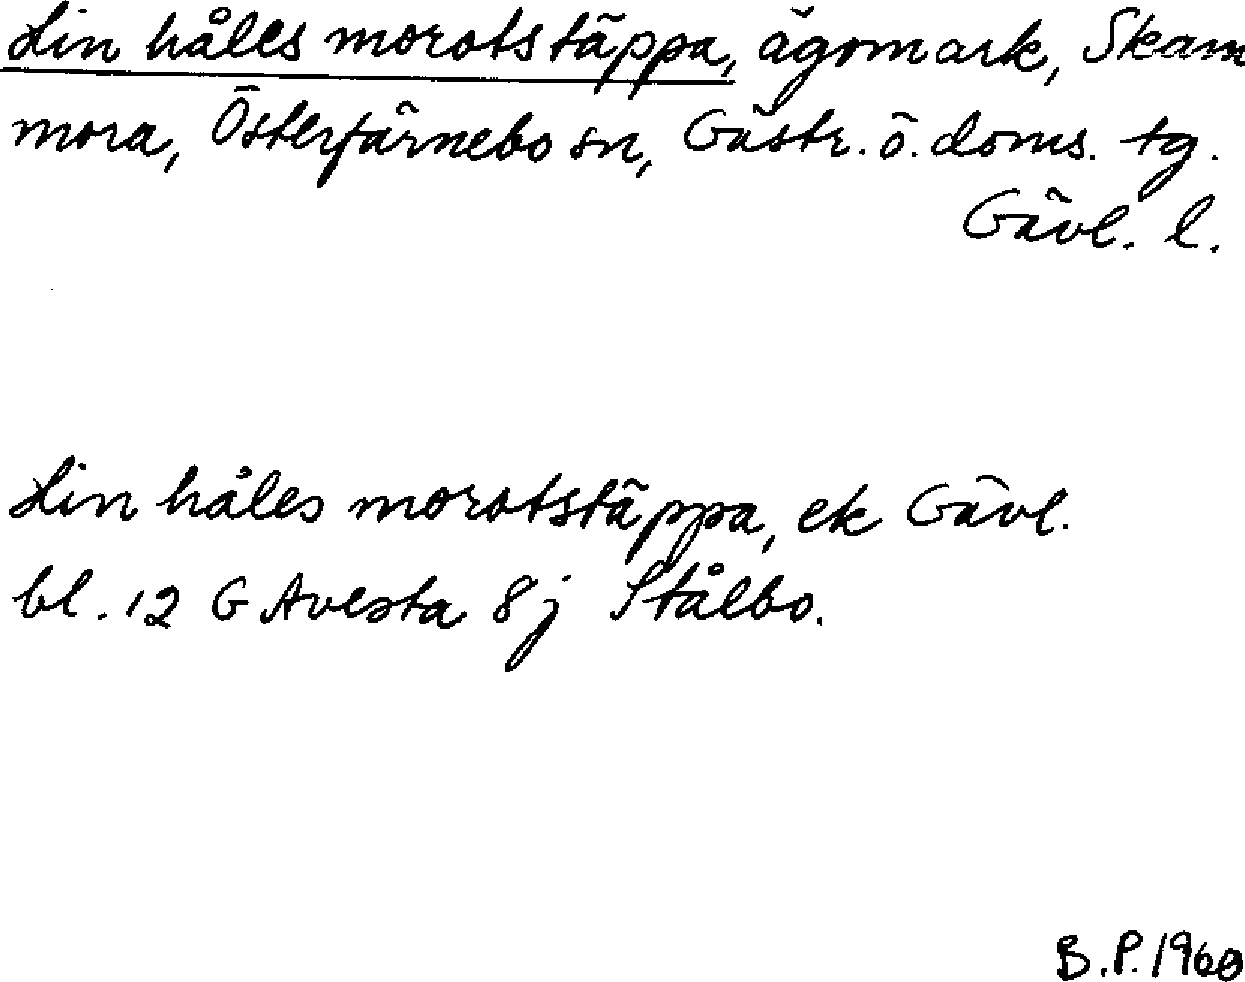 Lin håles morotstäppa, ägomark, Skam
mora, Österfärnebo sn, Gästr. ö. doms. tg.
Gävl. l.
Lin håles morotstäppa, ek Gävl.
bl. 12 G Avesta 8 j Stålbo.
B.P. 1960